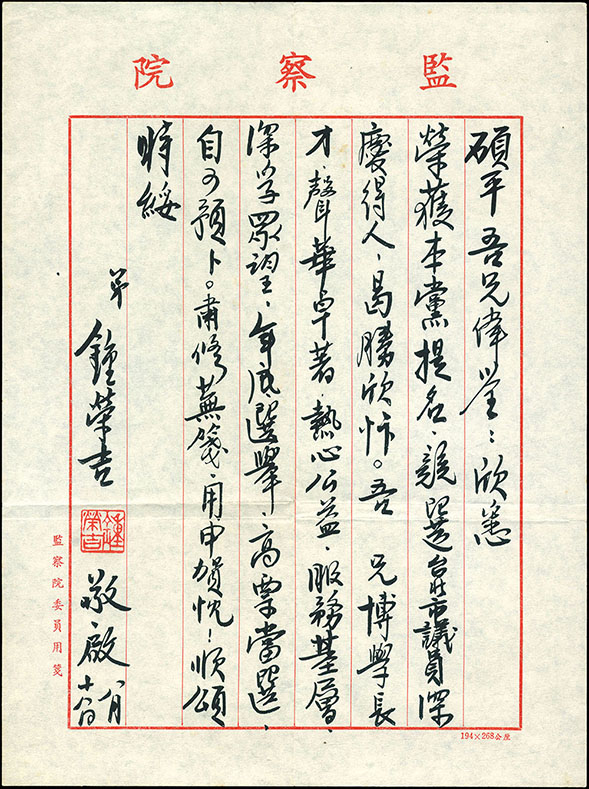 監察院
碩平吾兄偉鑒：欣悉
榮獲本黨提名、競選台北市議員深
慶得人、曷勝欣忭。吾　兄博學長
才、聲華卓著、熱心公益、服務基層、
深孚眾望、年底選舉、高票當選、
自可預卜。肅修蕪箋、用申賀忱！順頌
時綏
弟 鍾榮吉 敬啟 八月
鍾榮吉
監察院委員用箋
194×268公厘